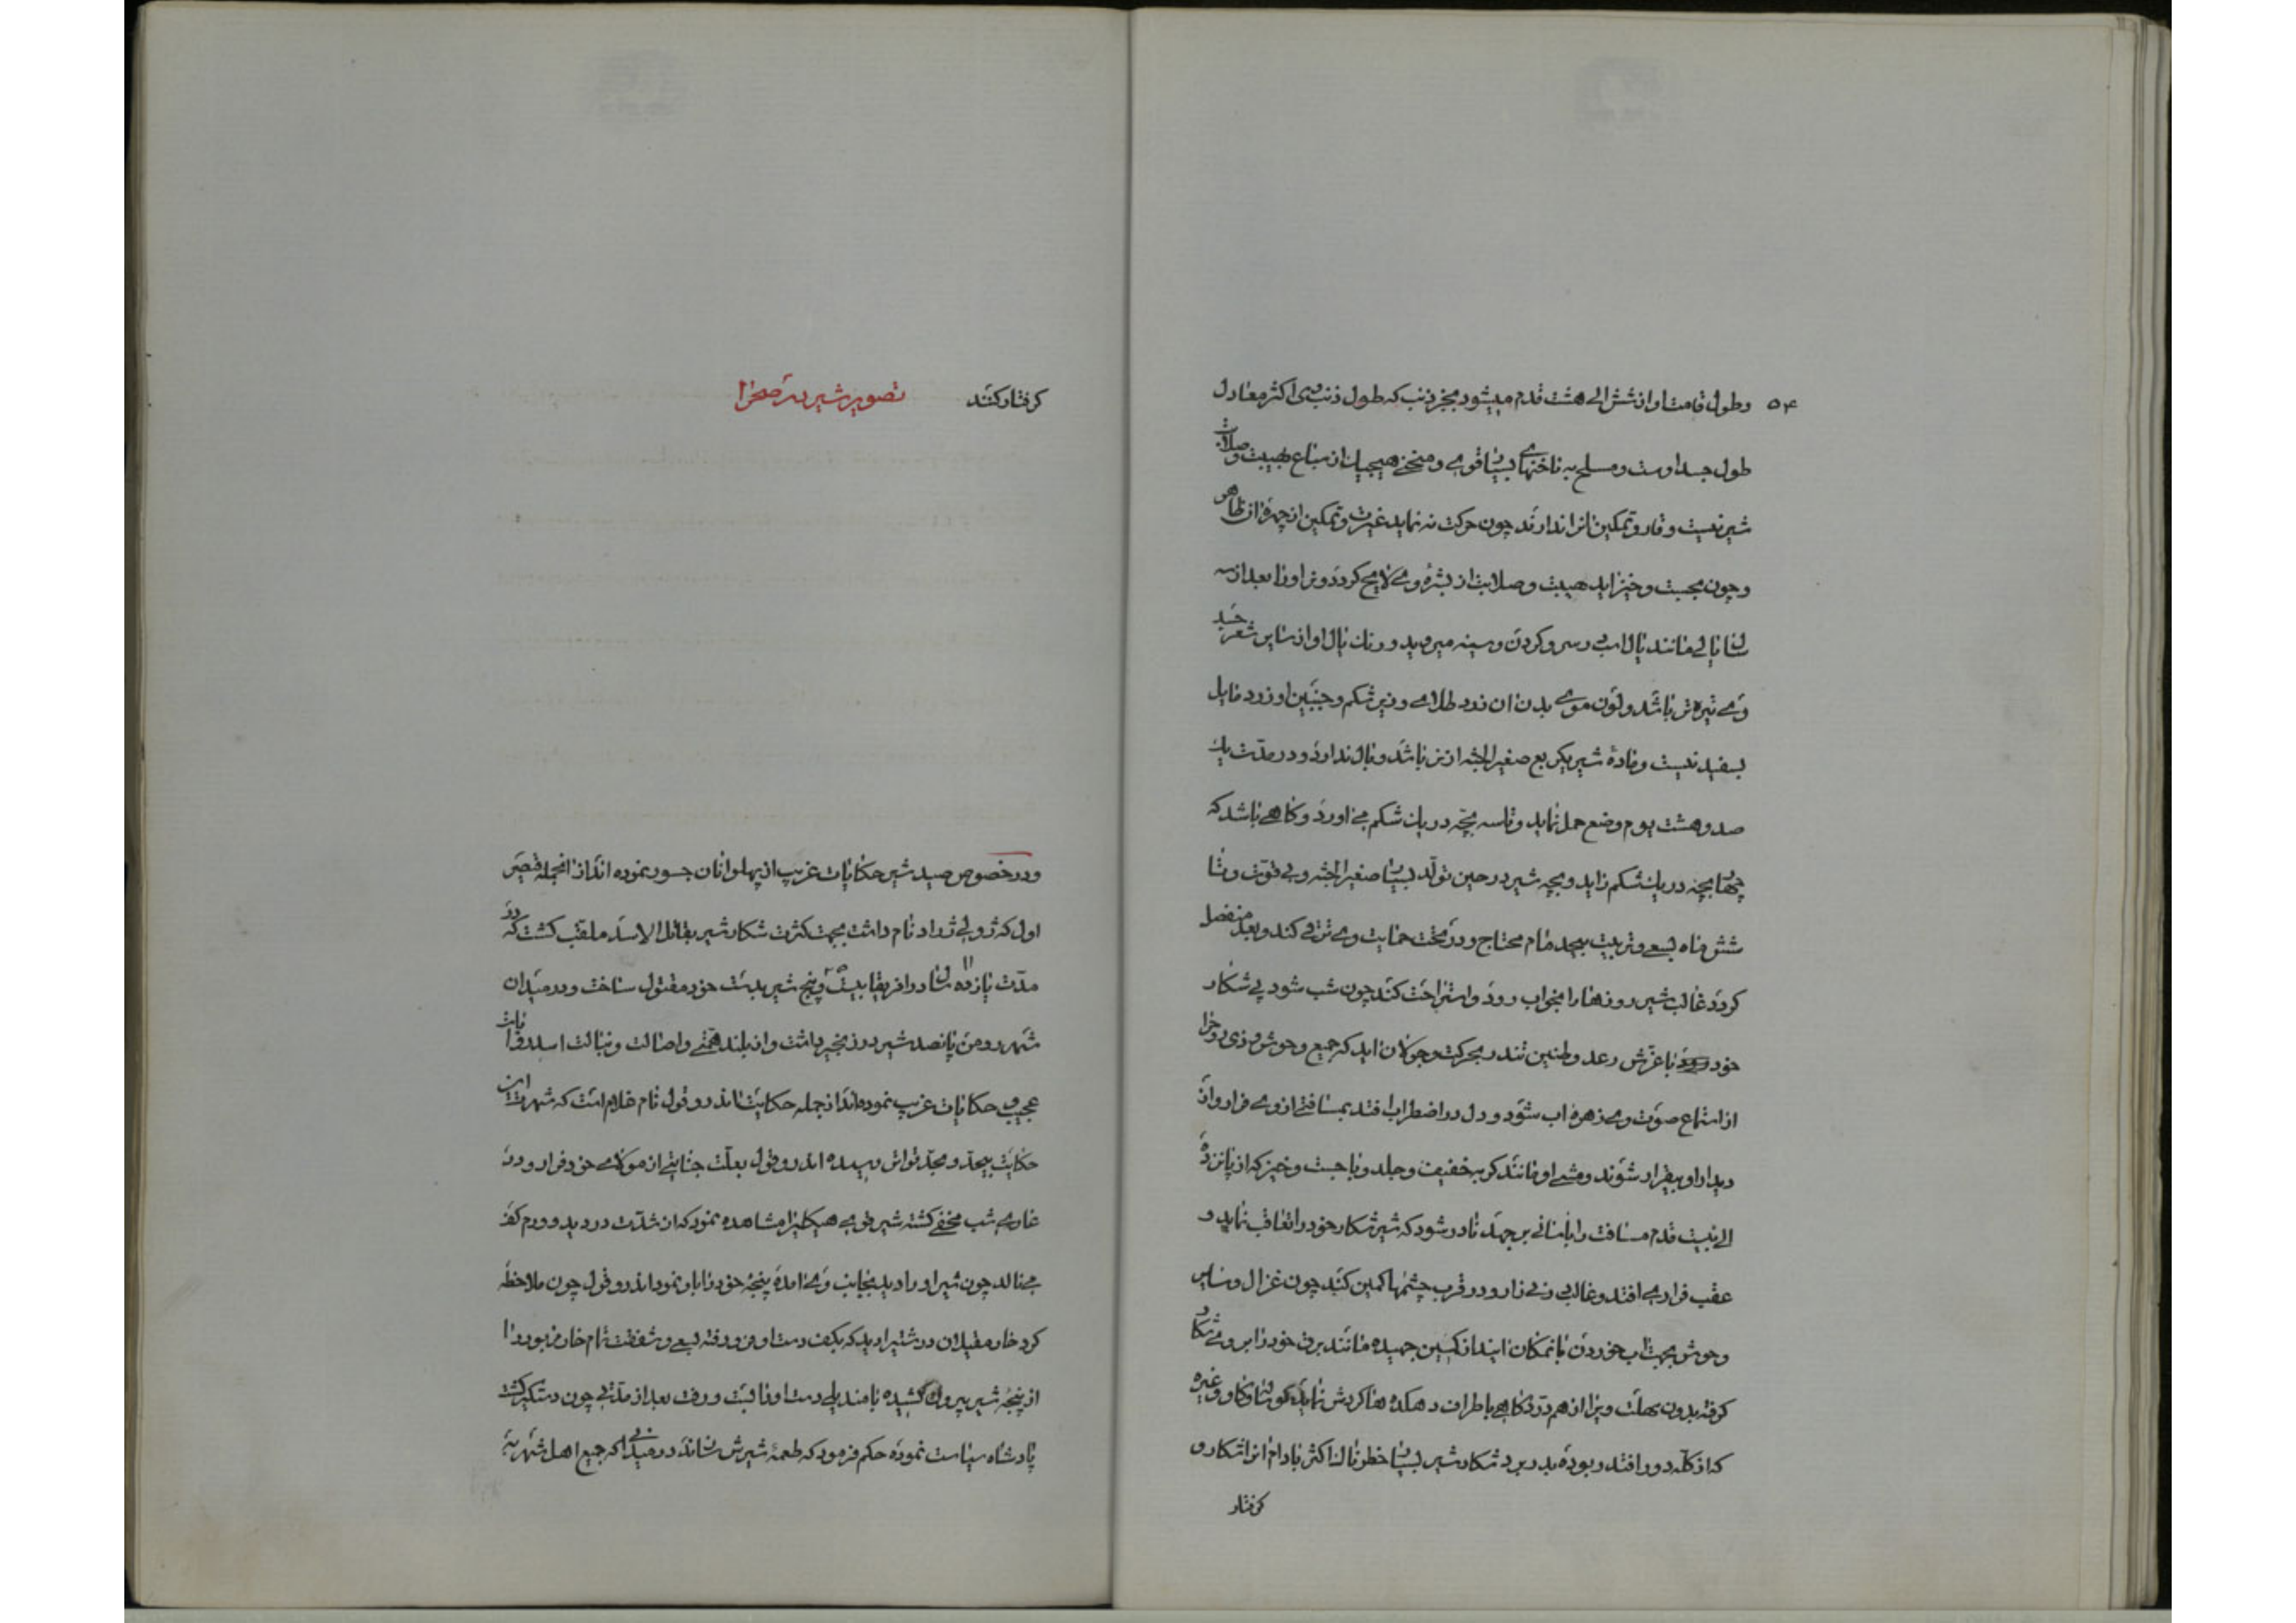 ۵۴ وطول قامت او از شش الی هشت قدم میشود بجز ذنب که طول ذنب وی اکثر معادل
طول جسد اوست و مسلح به ناخنهای بسیار قوی و منحنی هیچیک از سباع هیبت و صلابت
شیر نیست و قار و تمکین انرا ندارند چون حرکت نه نماید غیرت و تمکین از چهرهٔ ان ظاهر
و چون بجست و خیز اید هیبت و صلابت از بشرهٔ وی لایح کردد و نر اورا بعد از سه
سال یالی مانند یال اسب در سر و کردن و سینه میروید و رنك یال او از سایر شعر جسد
وی تیره تر باشد و لون موی بدن ان زرد طلای و زیر شکم و جنبین او زرد مایل
بسفید نیست و مادهٔ شیر یکربع صغیر الجثه از نر باشد و یال ندارد و در مدت یك
صد و هشت یوم وضع حمل نماید و تا سه بچه در یك شکم می اورد و کاهی باشد که
چهار بچه در یك شکم زاید و بچه شیر در حین تولد بسیار صغیر الجثه و بی قوت و تا
شش ماه بسعی و تربیت بیحد مام محتاج و در تحت حمایت وی ترقی کند و بعد منفصل
کردد غالب شیر روزها را بخواب رود و استراحت کند چون شب شود پی شکار
خود با غرش رعد و طنین تندر بحرکت و جولان اید که جمیع وحوش و ذی روح را
از استماع صوت وی زهره اب شود و دل در اضطراب افتد بمسافتی از وی فرار و از
دیدار او بیقرار شوند و مشی او مانند کربه خفیف و جلد و با جست و خیز که از پانزده
الی بیست قدم مسافت را باسانی بر جهد نادر شود که شیر شکار خود را تعاقب نماید و
عقب فراری افتد و غالب در نی زار و در قرب چشمها کمین کند چون غزال و سایر
وحوش بجهت اب خوردن بانمکان ایند از کمین جهیده مانند برق خود را بروی شکار
کرفته بدون مهلت ویرا از هم درد کاهی باطراف دهکده ها کردش نماید کوسفند و کاو و غیره
که از کله دور افتد ربوده بدر برد شکار شیر بسیار خطرناك اکثر با دام انرا شکار و
کرفتار
کرفتار کنند تصویر شیر در صحرا
و در خصوص صید شیر حکایات غریب از پهلوانان جسور نموده اند از انجمله قیصر
اول که نام داشت بجهت کثرت شکار شیر بقاتل الاسد ملقب کشت که در
مدت یازده سال در افریقا بیست و پنج شیر بدست خود مقتول ساخت و در میدان
شهر رومن پانصد شیر در زنجیر داشت و از بلند همتی و اصالت و نبالت اسد
عجیب و حکایات غریب نموده اند از جمله حکایت اندروقول نام غلام است که شهرت این
حکایت بیحد و بحد تواتر رسیده اندروقول بعلت جنایتی از مولای خود فرار و در
غاری شب مخفی کشته شیر قوی هیکلیرا مشاهده نمود که از شدت درد ید و ورم کف
می نالد چون شیر او را دید بجانب وی امده پنجهٔ خود را باو نمود اندروقول چون ملاحظه
کرد خار مغیلان درشتیرا دید که بکف دست او فرو رفته بسعی و شفقت تمام خار مزبور را
از پنجهٔ شیر بیرون کشیده با مندیلی دست او را بست و رفت بعد از مدتی چون دستکیر کشت
پادشاه سیاست نموده حکم فرمود که طعمهٔ شیرش سازند در میدانی که جمیع اهل شهر به